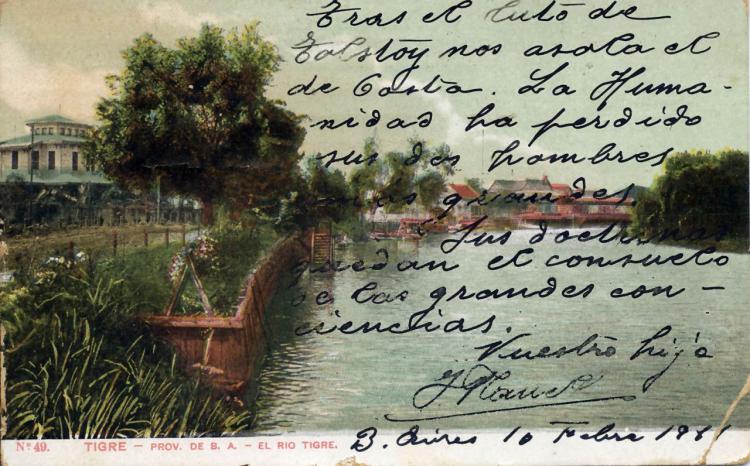 Tras el luto de
Tolstoy nos asola el
de Costa. La Huma-
nidad ha perdido
sus dos hombres
más grandes.
Sus doctrinas
quedan el consuelo
de las grandes con-
ciencias.
Vuestro hijo
B. Aires 10 Febro 1911
Nº 49. TIGRE — PROV. DE B. A. — EL RIO TIGRE.